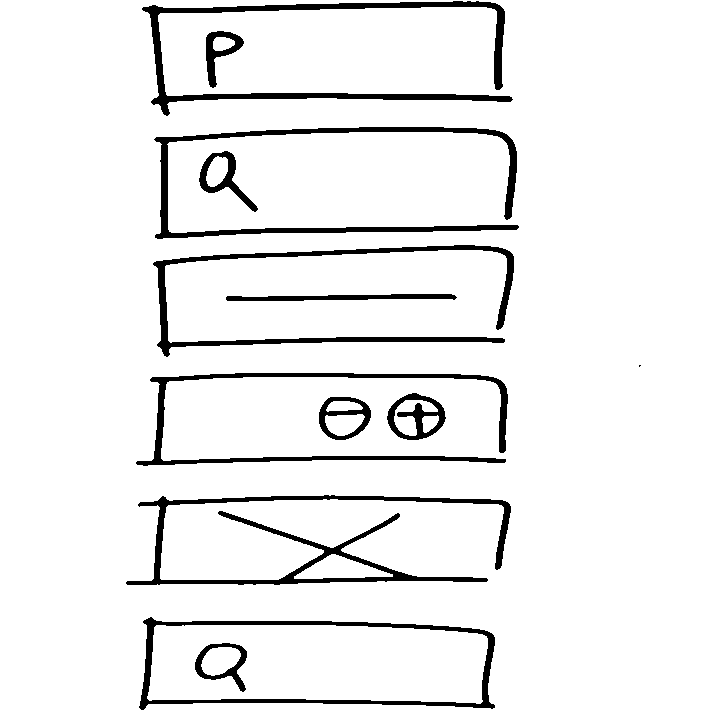 P
Q
—
⊖ ⊕
Q